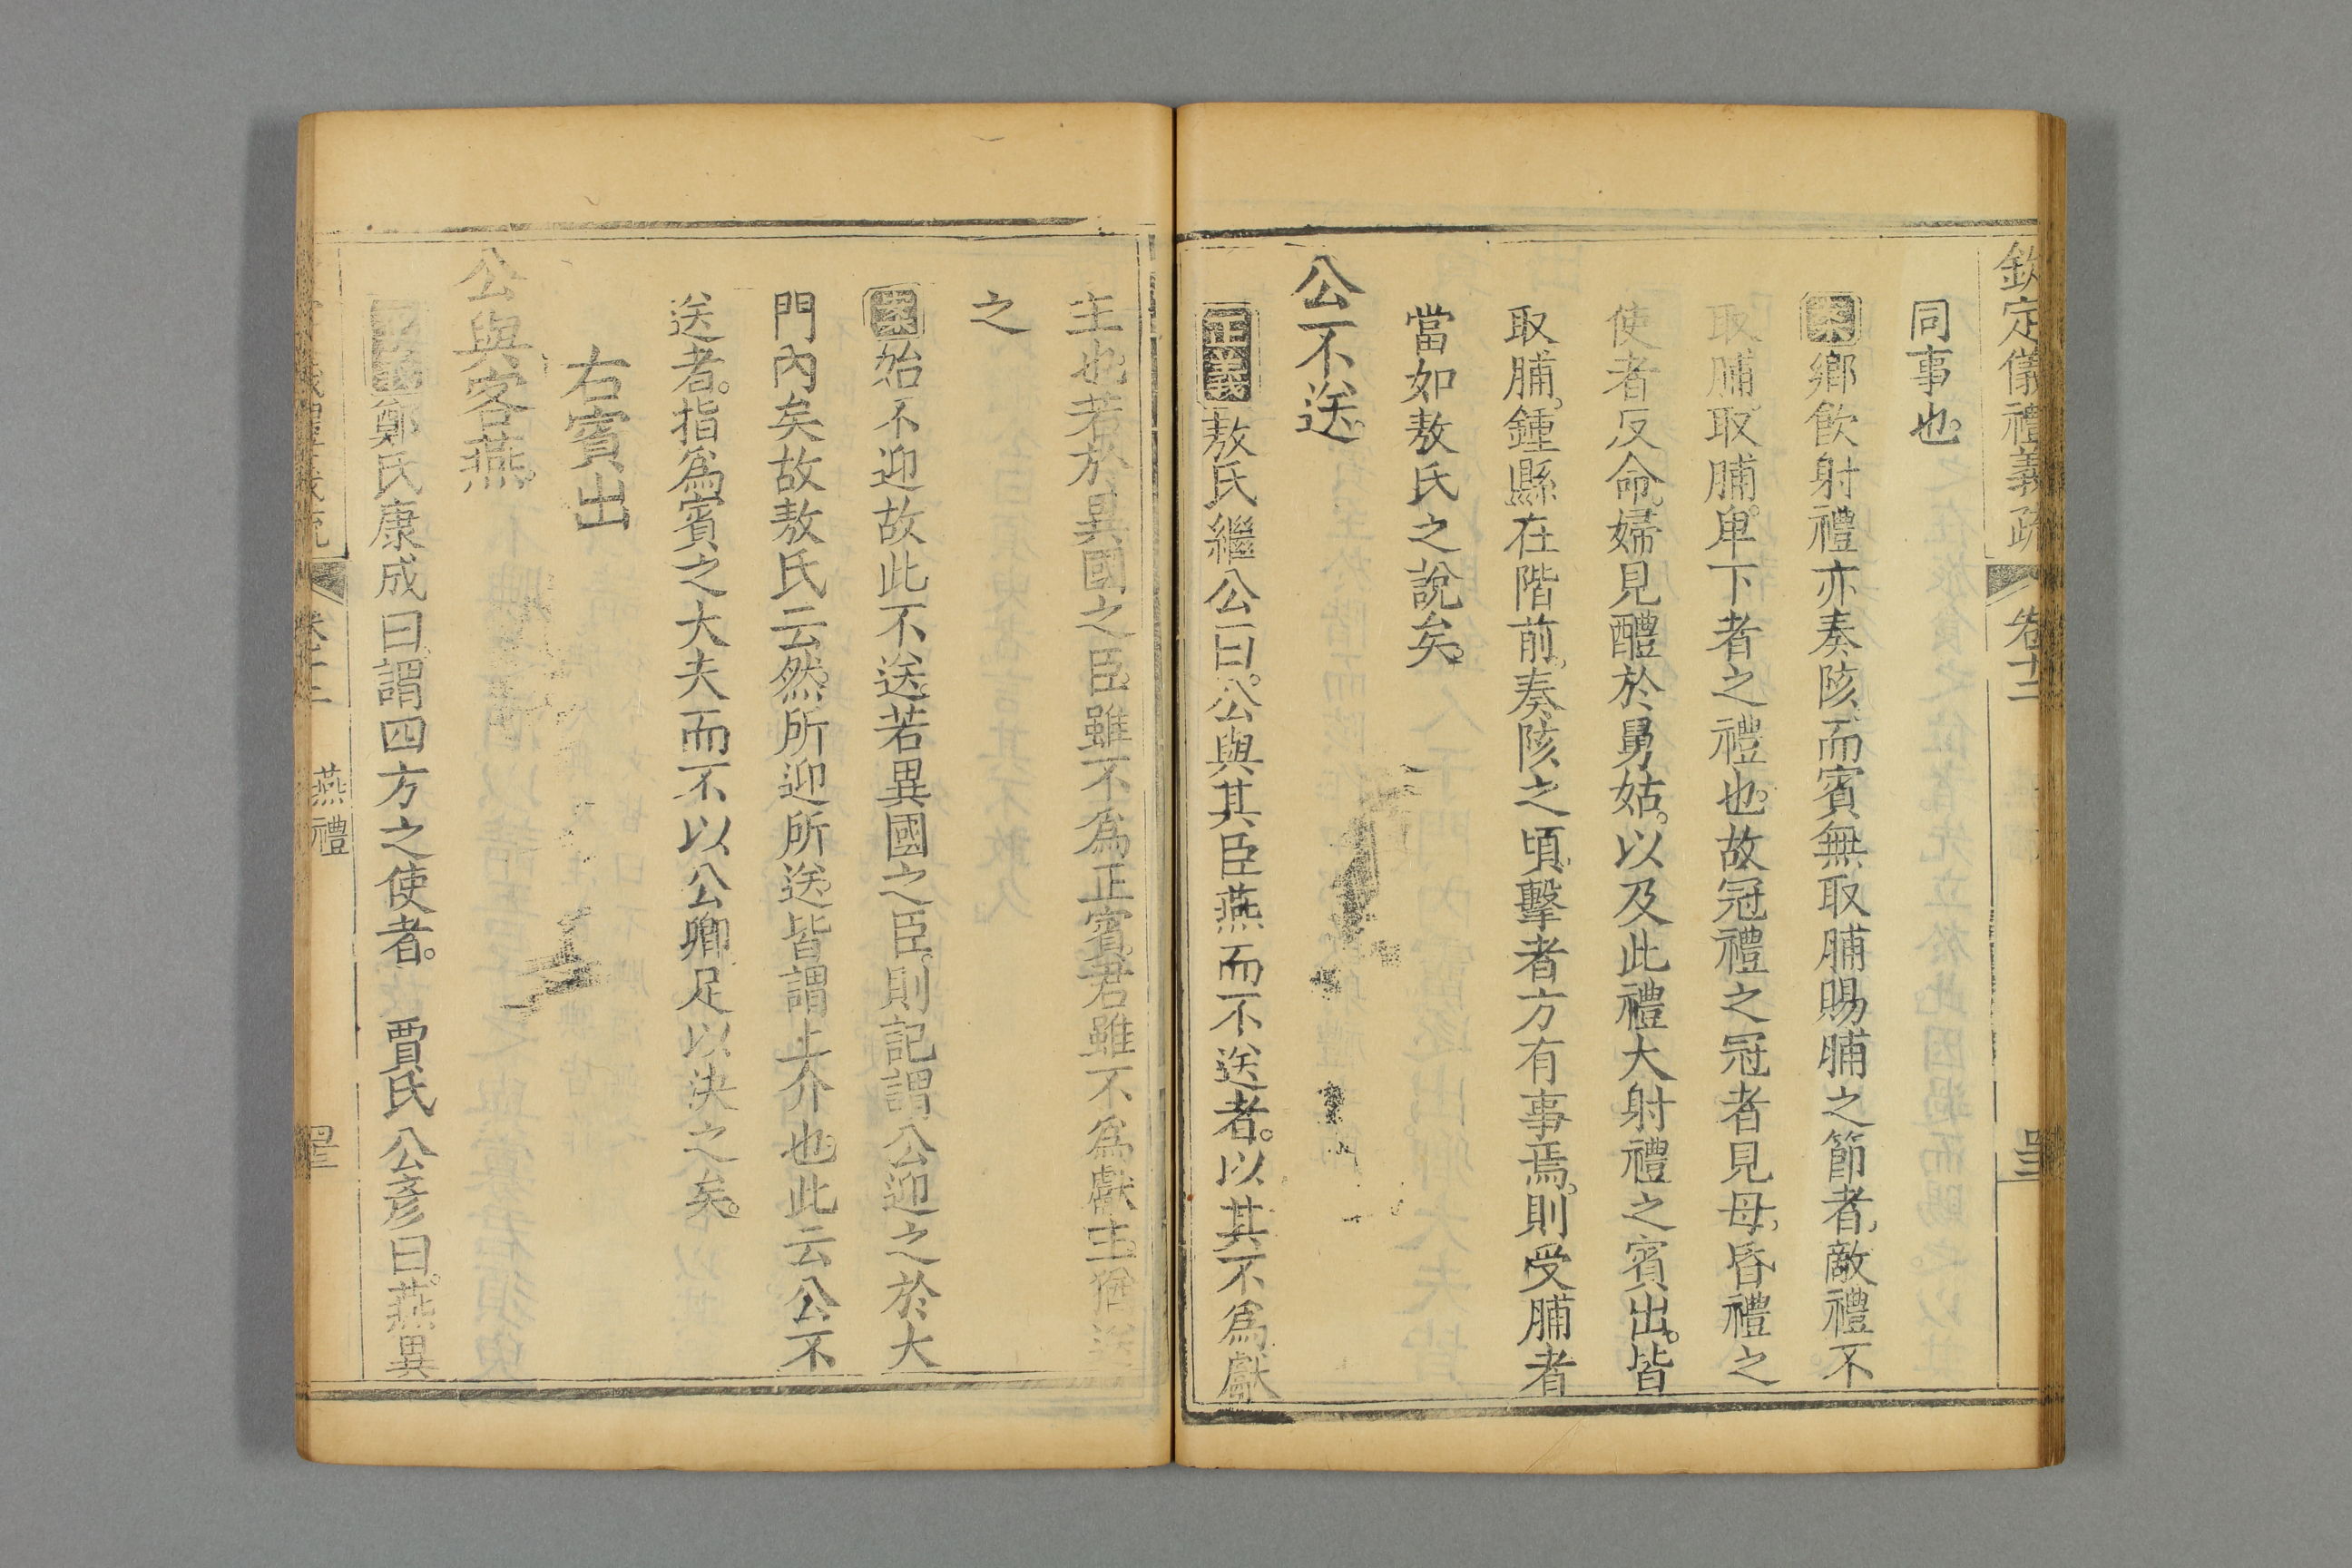 欽定儀禮義疏 卷十二
同事也。
案鄉飲射禮亦奏陔而賓無取脯賜脯之節者,敵禮不
取脯。取脯。卑下者之禮也。故冠禮之冠者見母,昏禮之
使者反命。婦見醴於舅姑。以及此禮大射禮之賓出。皆
取脯。鍾縣在階前。奏陔之頃,擊者方有事焉。則受脯者
當如敖氏之說矣。
公不送。
正義敖氏繼公曰。公與其臣燕而不送者。以其不為獻
主也。若於異國之臣。雖不為正賓。君雖不為獻主。猶送
之
案始不迎故此不送。若異國之臣。則記謂公迎之於大
門內矣故敖氏云然。所迎所送皆謂上介也。此云公不
送者。指為賓之大夫而不以公卿足以決之矣。
右賓出
公與客燕。
正義鄭氏康成曰。謂四方之使者。 賈氏公彥曰。燕異
卷十二 燕禮